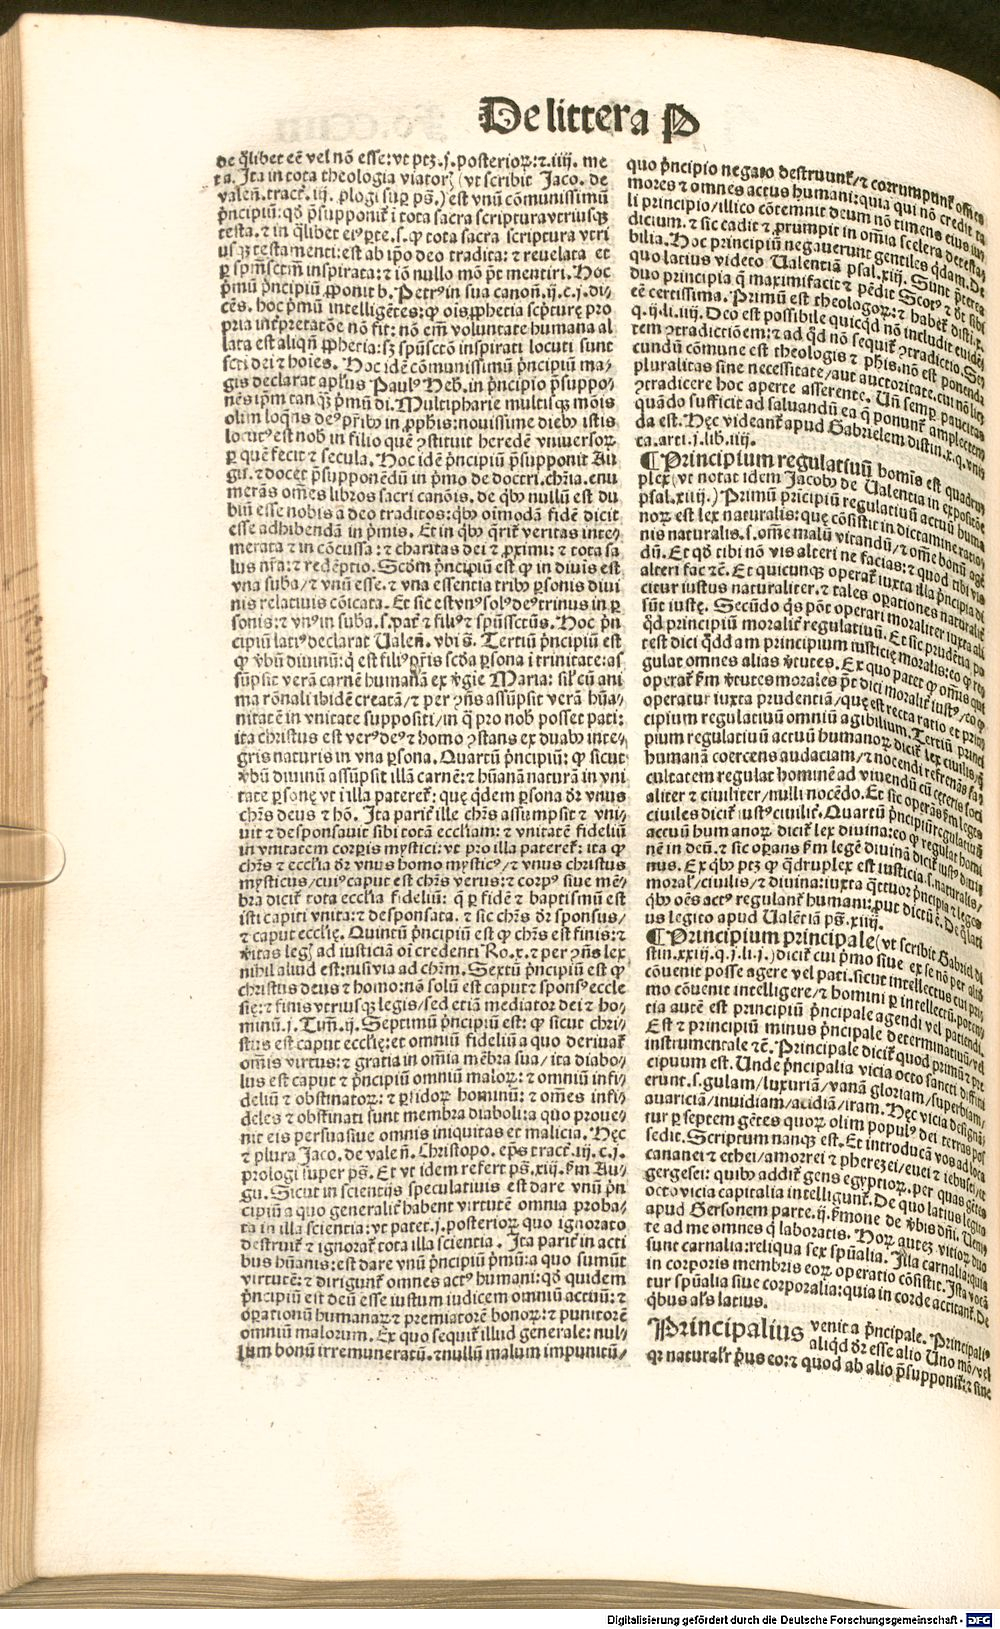 De littera P
de q̃libet eẽ vel nõ esse: vt ptꝫ .j. posterioꝝ: ⁊ .iiij. me
ta. Ita in tota theologia viatoꝝ (vt scribit Jaco. de
valeñ. tract̃. iij. ꝓlogi suꝑ pš.) est vnũ cõmunissimũ
prĩcipiũ: qđ p̃supponit̃ ĩ tota sacra scriptura vtriusqꝫ
testa. ⁊ in q̃libet eiꝰ ꝑte. s. ꝙ tota sacra scriptura vtri
usqꝫ testamenti: est ab ip̃o deo tradita: ⁊ reuelata et
ꝑ spm̃sctm̃ inspirata: ⁊ iõ nullo mõ põt mentiri. Hoc
p̃mũ p̃ncipiũ ꝓponit b. Petrꝰ in sua canoñ. ij. c. j. di/
cẽs. hoc p̃mũ intelligẽtes: ꝙ ois ꝓphetia scp̃ture pro
pria int̃pretatõe nõ fit: nõ em̃ voluntate humana al
lata est aliqñ ꝓphetia: sꝫ spũsctõ inspirati locuti sunt
scti dei ⁊ hoies. Hoc idẽ cõmunissimũ p̃ncipiũ ma/
gis declarat apl̃us Paulꝰ Heb̃. in p̃ncipio p̃suppo/
nẽs ip̃m tanqꝫ p̃mũ di. Multipharie multisqꝫ mõis
olim loq̃ns deꝰ pr̃ibꝰ in ꝓphis: nouissime diebꝰ istis
locutꝰ est nob̃ in filio quẽ ꝯstituit heredẽ vniuersoꝝ
ꝑ quẽ fecit ⁊ secula. Hoc idẽ p̃ncipiũ p̃supponit Au
gu. ⁊ docet p̃supponẽdũ in p̃mo de doctri. chr̃ia. enu
merãs om̃es libros sacri canõis. de qbꝰ nullũ est du
biũ esse nobis a deo traditos: qbꝰ oĩmodã fidẽ dicit
esse adhibendã in p̃mis. Et in qbꝰ q̃rit̃ veritas inte/
merata ⁊ in cõcussa: ⁊ charitas dei ⁊ ꝓximi: ⁊ tota sa
lus nr̃a: ⁊ redẽptio. Scd̃m p̃ncipiũ est ꝙ in diuis est
vna suba / ⁊ vnũ esse. ⁊ vna essentia tribꝰ ꝑsonis diui
nis relatiuis cõicata. Et sic est vnꝰ solꝰ deꝰ trinus in ꝑ
sonis: ⁊ vnꝰ in suba. s. pat̃ ⁊ filiꝰ ⁊ spũssctũs. Hoc p̃n
cipiũ latiꝰ declarat Valeñ. vbi s̃. Tertiũ p̃ncipiũ est
ꝙ v̓bũ diuinũ: q̃ est filiꝰ pr̃is scđa ꝑsona ĩ trinitate: as
sũpsit verã carnẽ humanã ex v̓gie Maria: sil̃ cũ ani
ma rõnali ibidẽ creatã / ⁊ per ꝯñs assũpsit verã hũa/
nitatẽ in vnitate suppositi / in q̃ pro nob̃ posset pati:
ita christus est verꝰ deꝰ ⁊ homo ꝯstans ex duabꝰ inte/
gris naturis in vna ꝑsona. Quartũ p̃ncipiũ: ꝙ sicut
v̓bũ diuinũ assũpsit illã carnẽ: ⁊ hũanã naturã in vni
tate ꝑsonę vt ĩ illa pateret̃: quę q̃dem ꝑsona dr̃ vnus
chr̃s deus ⁊ hõ. Ita parit̃ ille chr̃s assumpsit ⁊ vni/
uit ⁊ desponsauit sibi totã eccl̃iam: ⁊ vnitatẽ fideliũ
in vnitatem corꝑis mystici: vt pro illa pateret̃: ita ꝙ
chr̃s ⁊ eccl̃ia dr̃ vnus homo mysticꝰ / ⁊ vnus christus
mysticus / cuiꝰ caput est chr̃s verus: ⁊ corpꝰ siue mẽ/
bra dicit̃ tota eccl̃ia fideliũ: q̃ ꝑ fidẽ ⁊ baptismũ est
isti capiti vnita: ⁊ desponsata. ⁊ sic chr̃s dr̃ sponsus /
⁊ caput eccl̃ię. Quintũ p̃ncipiũ est ꝙ chr̃s est finis: ⁊
v̓itas leg̃ ad iusticiã oĩ credenti Ro. x. ⁊ per ꝯñs lex
nihil aliud est: nisi via ad chr̃m. Sextũ p̃ncipiũ est ꝙ
christus deus ⁊ homo: nõ solũ est caput ⁊ sponsꝰ eccle
się: ⁊ finis vtriusqꝫ legis / sed etiã mediator dei ⁊ ho/
minũ. j. Tim̃. ij. Septimũ p̃ncipiũ est: ꝙ sicut chri/
stus est caput eccl̃ię: et omniũ fideliũ a quo deriuat̃
om̃is virtus: ⁊ gratia in om̃ia mẽbra sua / ita diabo/
lus est caput ⁊ p̃ncipiũ omniũ maloꝝ: ⁊ omniũ infi/
deliũ ⁊ obstinatoꝝ: ⁊ ꝑfidoꝝ hominũ: ⁊ om̃es infi/
deles ⁊ obstinati sunt membra diaboli: a quo proue/
nit eis persuasiue omnis iniquitas et malicia. Hęc
⁊ plura Jaco. de valeñ. Christopo. ep̃s tract̃. iij. c. j.
prologi super pš. Et vt idem refert pš. xiij. f̃m Au/
gu. Sicut in scientijs speculatiuis est dare vnũ p̃n
cipiũ a quo generalit̃ habent virtutẽ omnia proba/
ta in illa scientia: vt patet .j. posterioꝝ quo ignorato
destruit̃ ⁊ ignorat̃ tota illa scientia. Ita parit̃ in acti
bus hũanis: est dare vnũ p̃ncipiũ p̃mũ: a quo sumũt
virtutẽ: ⁊ dirigunt̃ omnes actꝰ humani: qđ quidem
p̃ncipiũ est deũ esse iustum iudicem omniũ actuũ: ⁊
oꝑationũ humanaꝝ ⁊ premiatorẽ bonoꝝ: ⁊ punitorẽ
omniũ malorum. Ex quo sequit̃ illud generale: nul/
lum bonũ irremuneratũ. ⁊ nullũ malum impunitũ /
quo p̃ncipio negato destruunt̃ / ⁊ corrumpunt̃ om̃es
mores ⁊ omnes actus humani: quia qui nõ credit ta
li principio / illico cõtemnit deum nõ timens eius iu/
dicium. ⁊ sic cadit ⁊ prumpit in om̃ia scelera detesta/
bilia. Hoc principiũ negauerunt gentiles q̃dam. De
quo latius videto Valentiã psal. xiij. Sunt p̃terea
duo principia q̃ maximi facit ⁊ pẽdit Scotꝰ ⁊ dt̃ sibi
eẽ certissima. Primũ est theologoꝝ: ⁊ habet̃ disti. x.
q. ij. li. iiij. Deo est possibile quicqđ nõ includit euidẽ
tem ꝯtradictiõem: ⁊ ad qđ nõ sequit̃ ꝯtradictio. Se
cundũ cõmune est theologis ⁊ phis. nõ est ponenda
pluralitas sine necessitate / aut auctoritate. cui nõ licet
ꝯtradicere hoc aperte asserente. Vñ semꝑ paucitas
quãdo sufficit ad saluandũ ea q̃ ponunt̃ amplecten
da est. Hęc videant̃ apud Gabrielem distin. x. q. vnis
ca. arti. j. lib. iiij.
¶ Principium regulatiuũ homĩs est quadru
plex (vt notat idem Jacobꝰ de Valentia in expositiõe
psal. xiiij.) Primũ p̃rcipiũ regulatiuũ actuũ huma
noꝝ est lex naturalis: quę cõsistit in dictamine ratio
nis naturalis. s. om̃e malũ vitandũ / ⁊ om̃e bonũ agẽ
dũ. Et qđ tibi nõ vis alteri ne facias: ⁊ quod tibi vis
alteri fac ⁊c̃. Et quicunqꝫ operat̃ iuxta illa p̃ncipia di
citur iustus naturaliter. ⁊ tales oꝑationes naturalit̃
sũt iustę. Secũdo q̃s põt operari moraliter iuxta ali
q̃đ principiũ moralit̃ regulatiuũ. Et sic prudẽtia po
test dici q̃dđam principium iusticię moralis: eo ꝙ re/
gulat omnes alias v̓tutes. Ex quo patet ꝙ om̃is qui
operat̃ f̃m v̓tutes morales p̃t dici moralit̃ iustꝰ / eo ꝙ
operatur iuxta prudentiã / quę est recta ratio et prin/
cipium regulatiuũ omniũ agibilium. Tertiũ princi
pium regulatiuũ actuũ humanoꝝ dicit̃ lex ciuilis / q̃
humanã coercens audaciam / ⁊ nocendi refrenãs fa/
cultatem regulat hominẽ ad viuendũ cũ cęteris soci
aliter ⁊ ciuiliter / nulli nocẽdo. Et sic operãs f̃m leges
ciuiles dicit̃ iustꝰ ciuilit̃. Quartũ p̃ncipiũ regulatiuũ
actuũ humanoꝝ dicit̃ lex diuina: eo ꝙ regulat homi
nẽ in deũ. ⁊ sic oꝑans f̃m legẽ diuinã dicit̃ iustꝰ diuis
nus. Ex qbꝰ ptꝫ ꝙ q̃druplex est iusticia. s. naturalis /
moral̃ / ciuilis / ⁊ diuina: iuxta q̃ttuor p̃ncipia ⁊ leges
qbꝰ oẽs actꝰ regulant̃ humani: ꝓut dictũ ẽ. De q̃ lati
us legito apud Valẽtiã pš. xiiij.
¶ Principium principale (vt scribit Gabriel di
stin. xxiij. q. j. li. j.) dicit̃ cui p̃mo siue ex se nõ per aliđ
cõuenit posse agere vel pati. sicut intellectus cui pri/
mo cõuenit intelligere / ⁊ homini ꝑ intellectũ. poten/
tia autẽ est principiũ p̃ncipale agendi vel patiendi.
Est ⁊ principiũ minus p̃ncipale determinatiuũ / vel
instrumentale ⁊c̃. Principale dicit̃ quod primũ ⁊ pre
cipuum est. Unde p̃ncipalia vicia octo sancti diffini
erunt. s. gulam / luxuriã / vanã gloriam / superbiam /
auariciã / inuidiam / acidiã / iram. Hęc vicia designã/
tur ꝑ septem gẽtes quoꝝ olim populꝰ dei terras pos
sedit. Scriptum nanqꝫ est. Et introducã vos ad loca
cananei ⁊ ethei / amorrei ⁊ pherezei / euei ⁊ iebusei / et
gergesei: quibꝰ addit̃ gens egyptioꝝ. per quas gẽtes
octo vicia capitalia intelligunt̃. De quo latius legito
apud Gersonem parte. ij. f̃mone de v̓bis dñi. Veni
te ad me omnes q̃ laboratis. Hoꝝ autẽ vitioꝝ duo
sunt carnalia: reliqua sex spũalia. Illa carnalia: quia
in corporis membris eoꝝ operatio cõsistit. Ista vocã
tur spũalia siue corporalia: quia in corde accitant̃. De
qbus al̓s latius.
Principalius venit a p̃ncipale. Principaliꝰ
aliqđ dr̃ esse alio Uno mõ / vel
qꝛ natural̓r p̓us eo: ⁊ quod ab alio p̃supponit̃: ⁊ sine
Digitalisierung gefördert durch die Deutsche Forschungsgemeinschaft - DFG